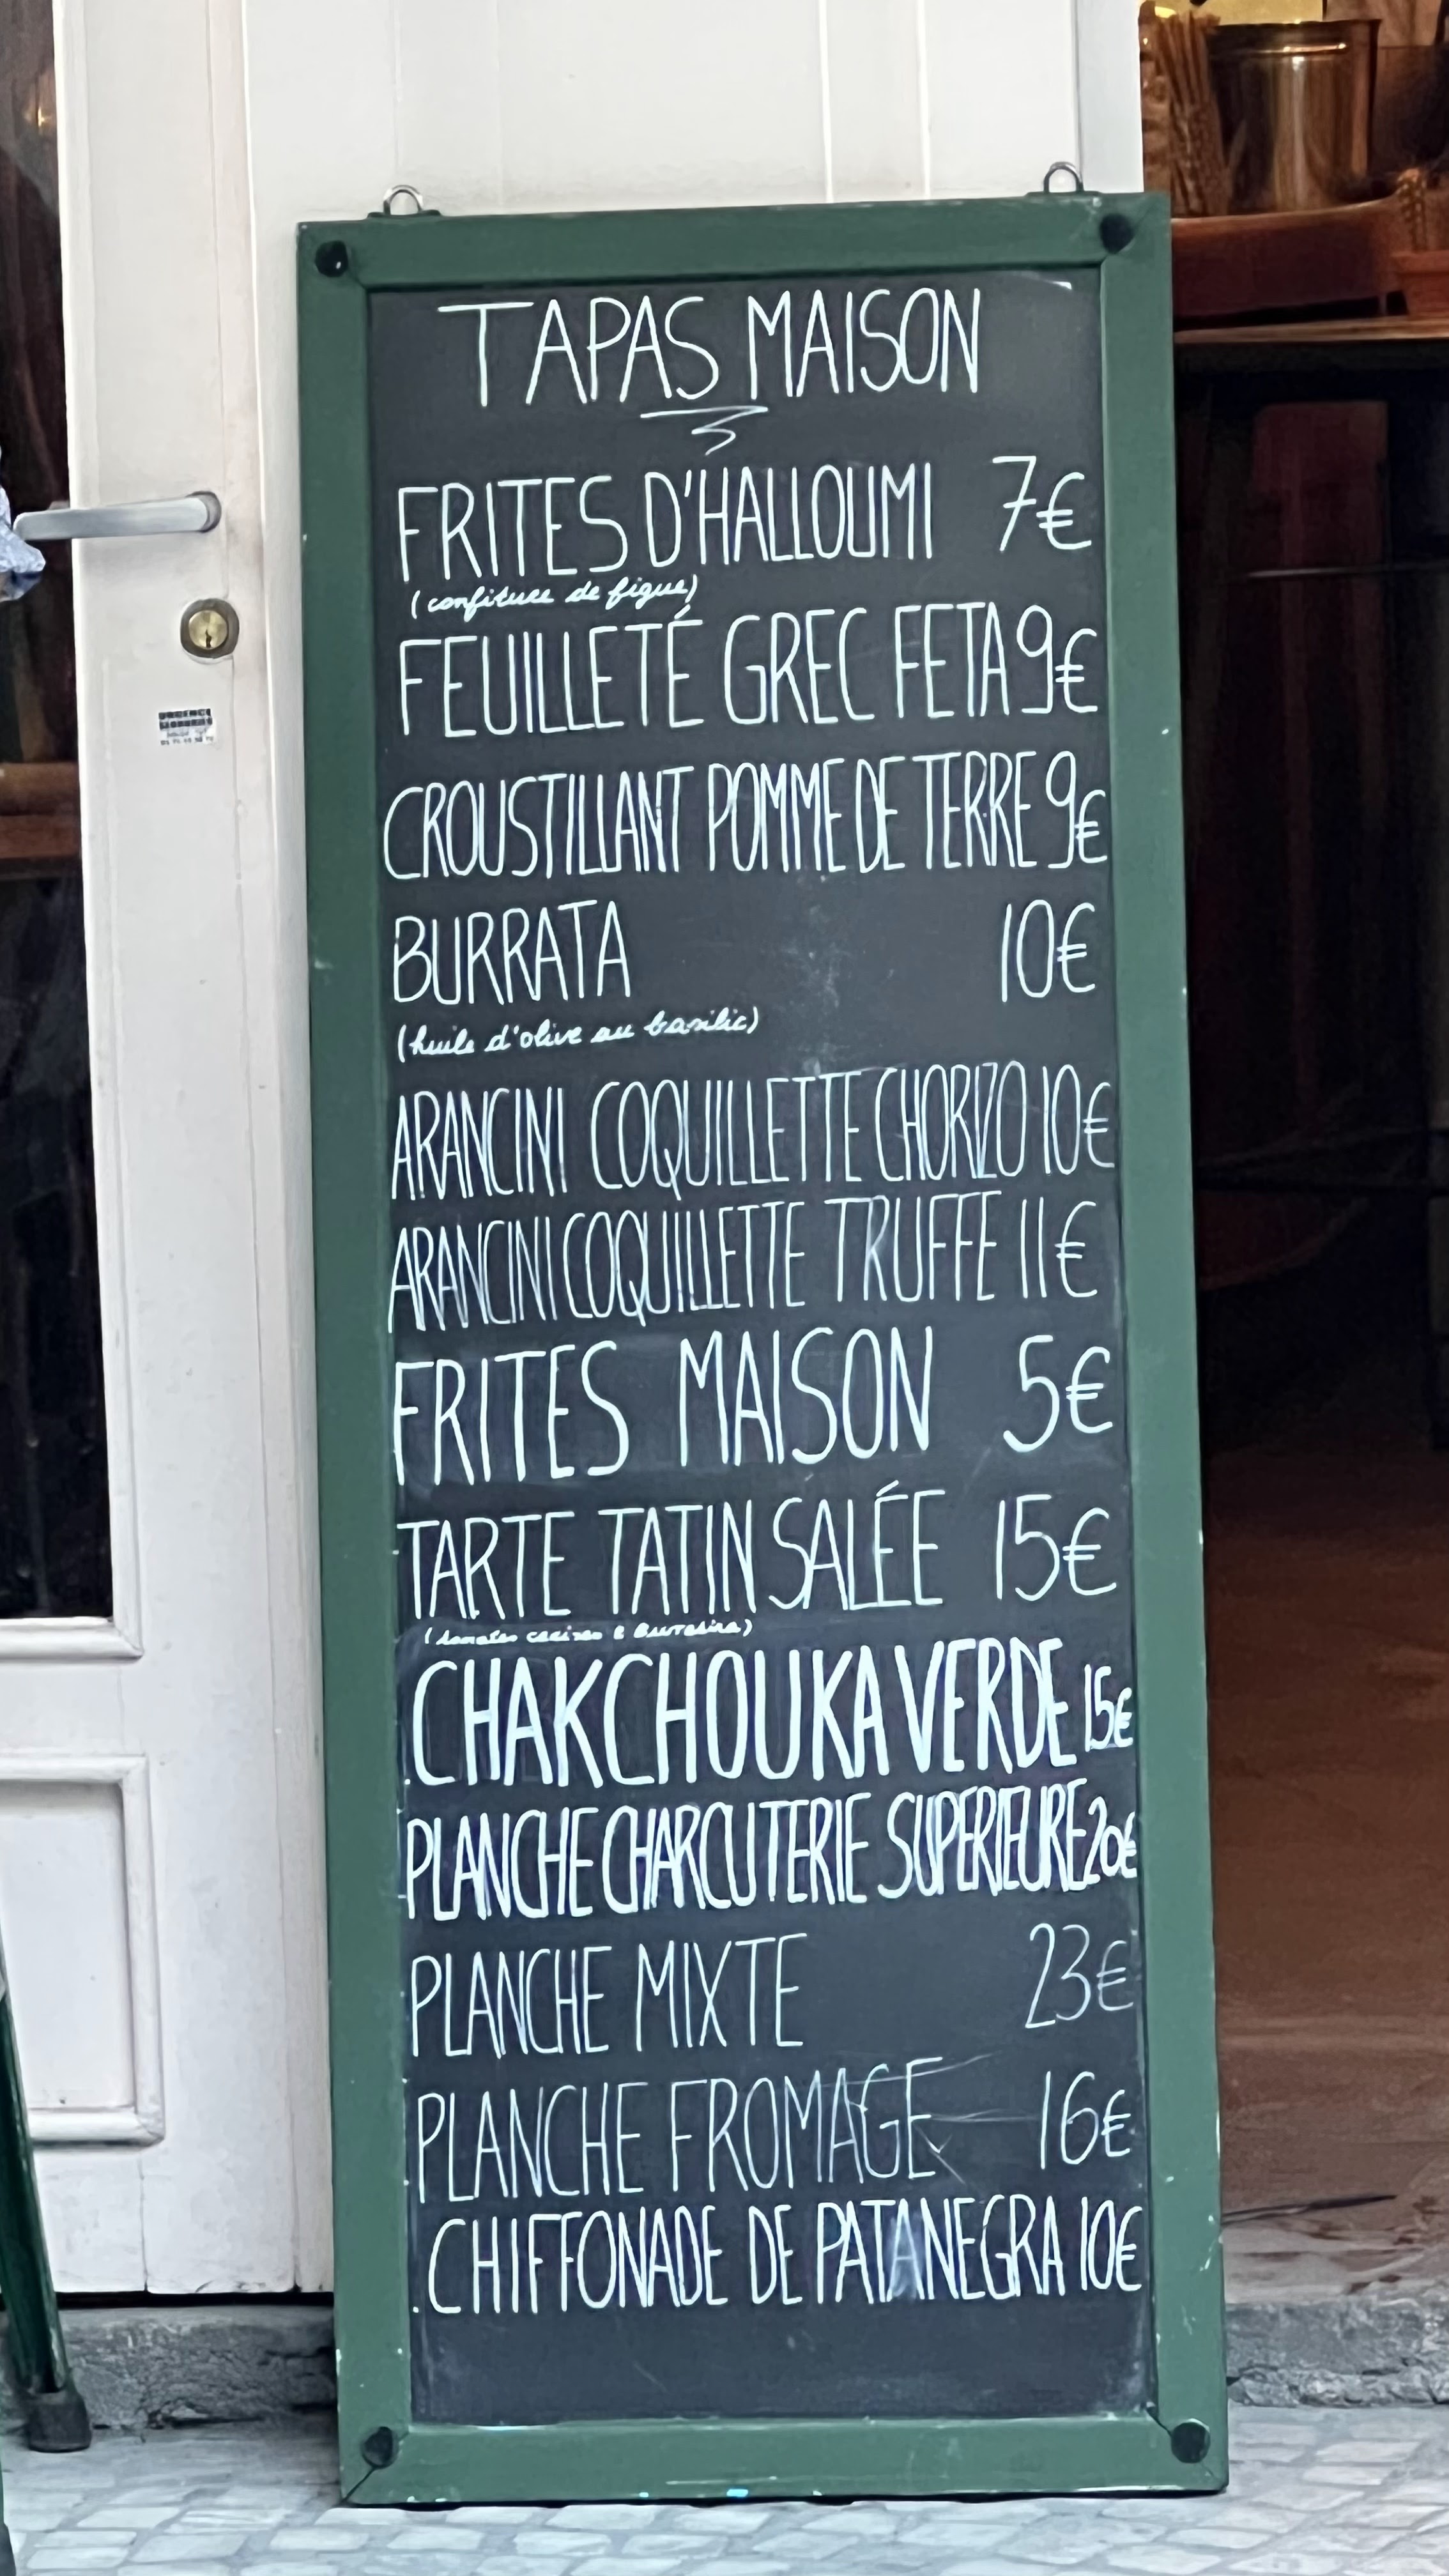 TAPAS MAISON
FRITES D'HALLOUMI 7€
(confiture de figue)
FEUILLETÉ GREC FETA 9€
CROUSTILLANT POMME DE TERRE 9€
BURRATA 10€
(huile d'olive au basilic)
ARANCINI COQUILLETTE CHORIZO 10€
ARANCINI COQUILLETTE TRUFFE 11€
FRITES MAISON 5€
TARTE TATIN SALÉE 15€
(tomates cerises & burratina)
CHAKCHOUKA VERDE 15€
PLANCHE CHARCUTERIE SUPERIEURE 20€
PLANCHE MIXTE 23€
PLANCHE FROMAGE 16€
CHIFFONADE DE PATANEGRA 10€